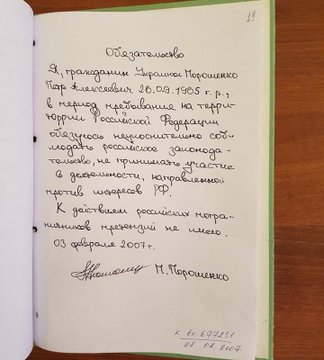 Обязательство
Я, гражданин Украины Порошенко
Петр Алексеевич 26.09.1965 г.р.,
в период пребывание на терри-
тюррии Российской Федерации
обязуюсь неукоснительно соб-
людать российское законода-
тельство, не принимать участие
в деятельности, направленной
против интересов РФ.
К действием российских погра-
ничников претензий не имею.
03 февраля 2007г.
П. Порошенко
к вх 677231
08.02.2007